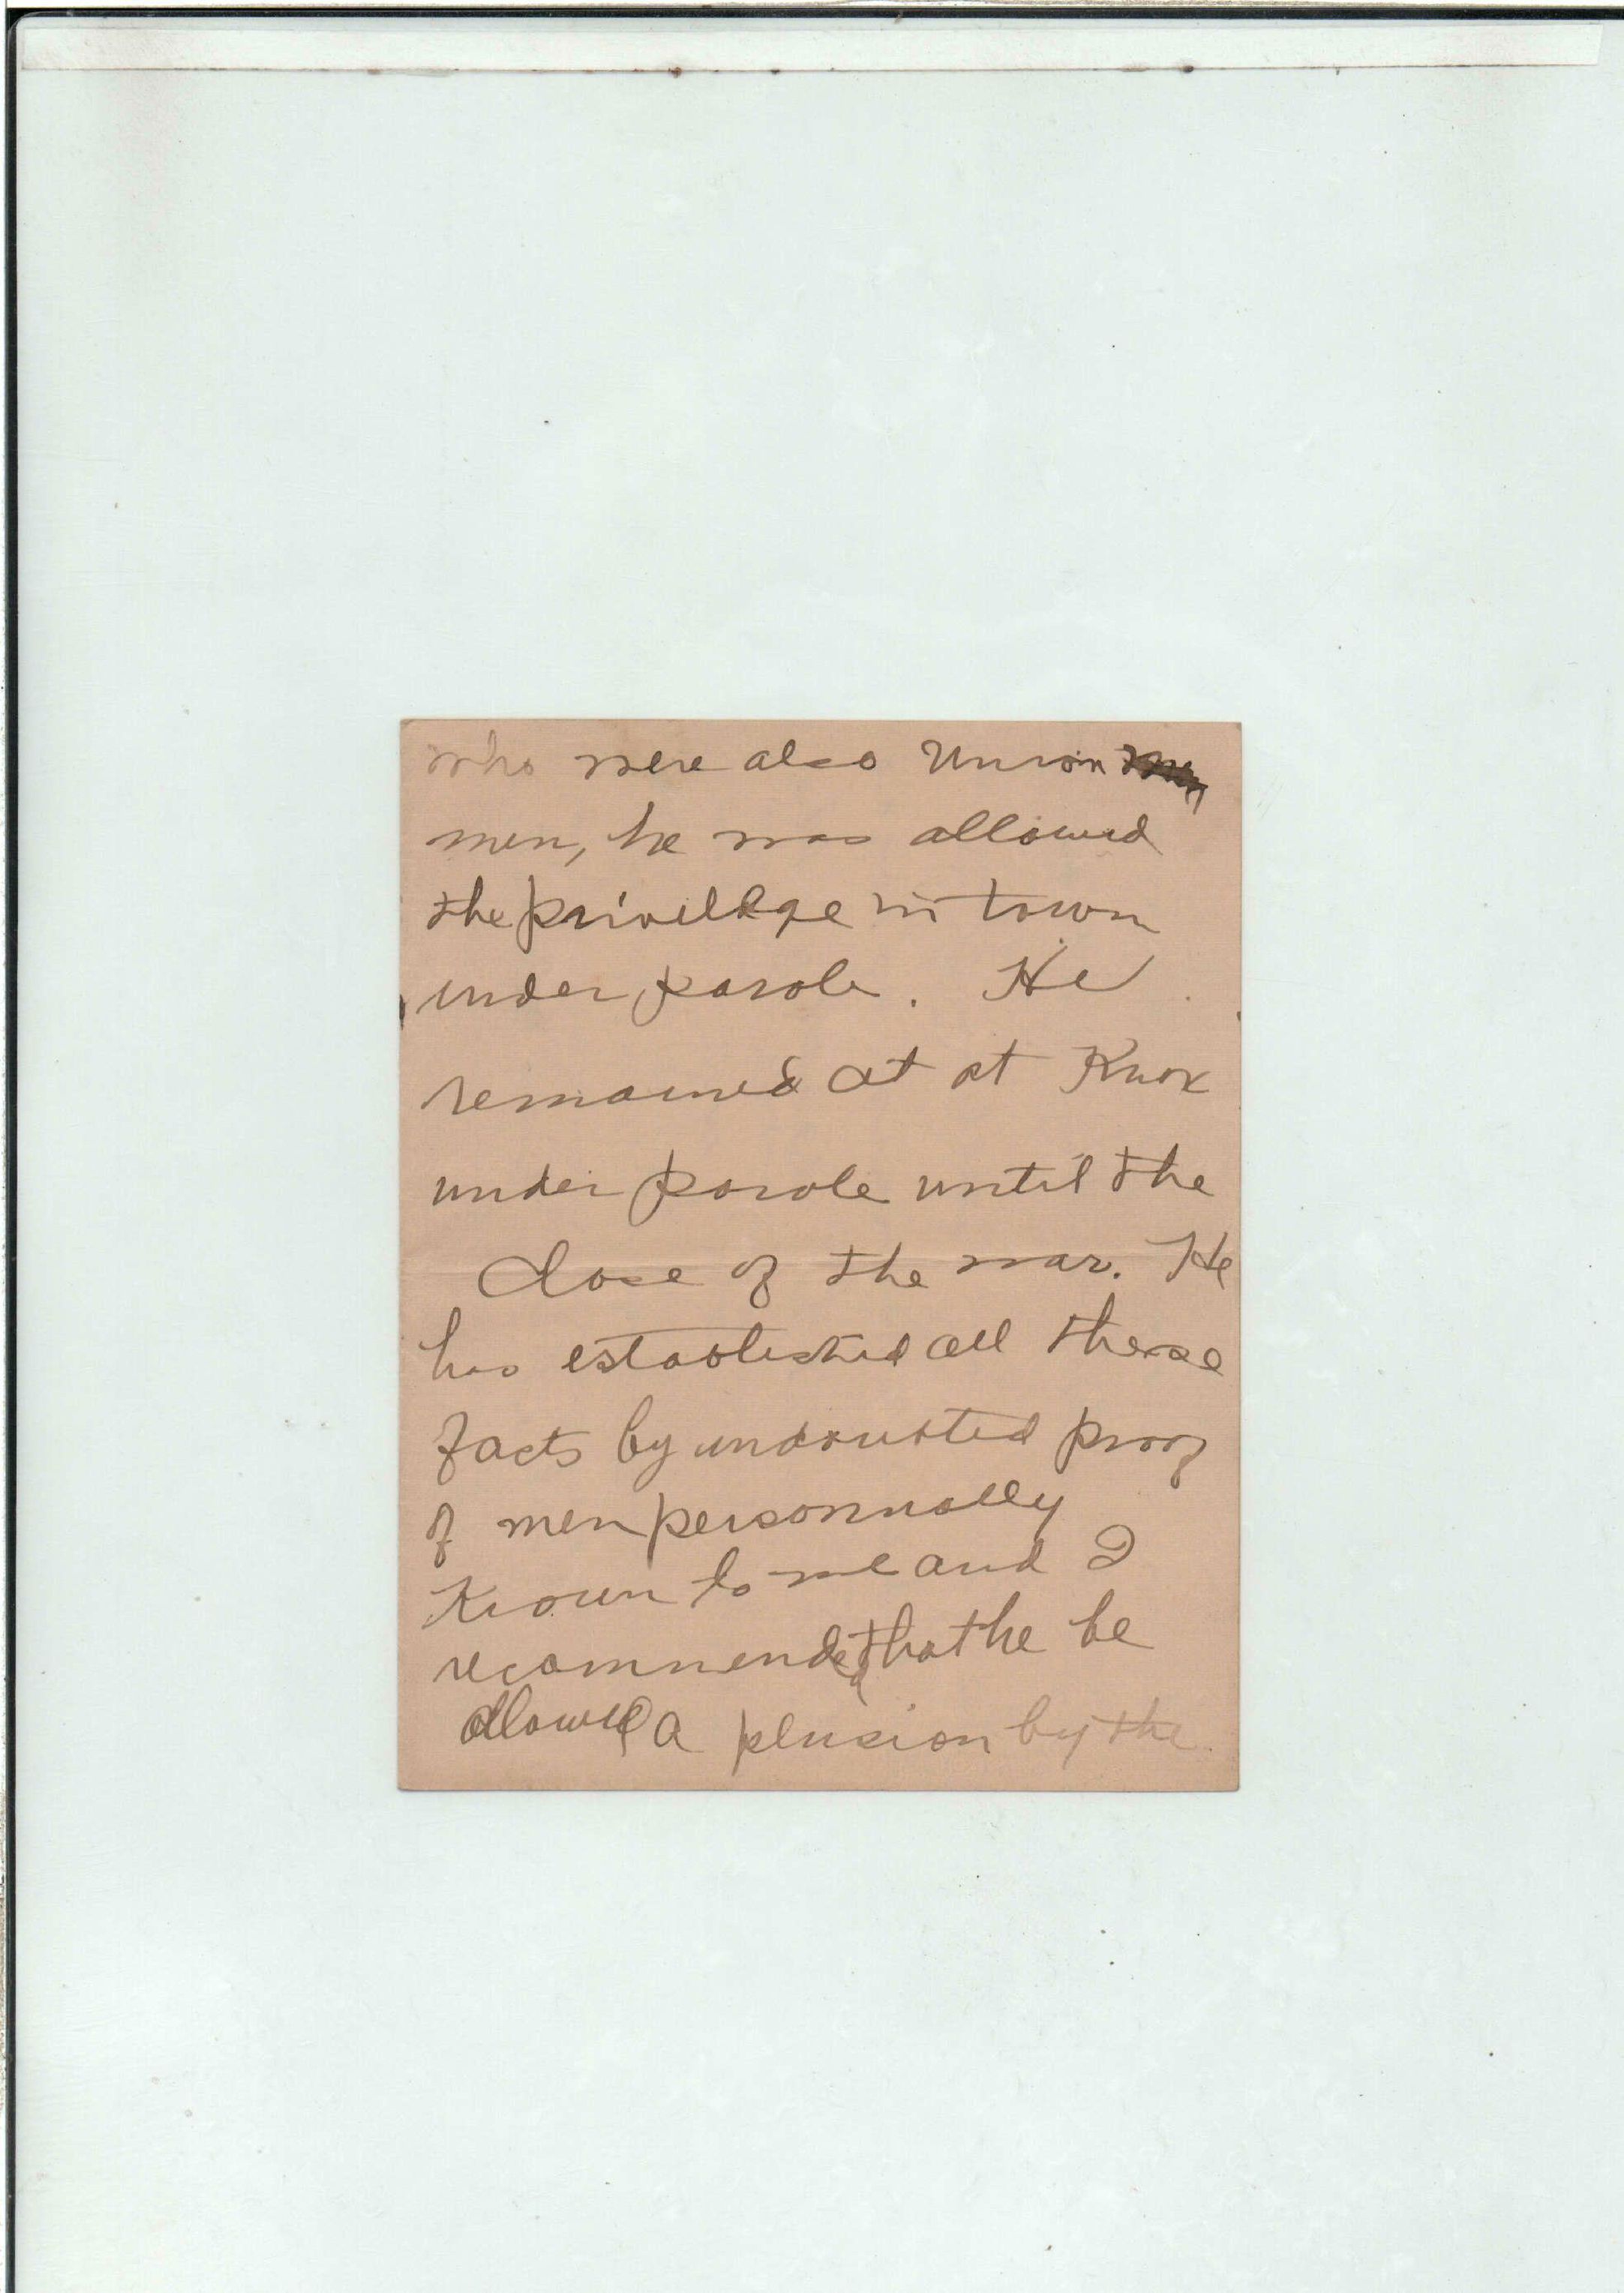 who were also Union
men, he was allowed
the privilege in town
under parole. He
remained at at Knox
under parole until the
close of the war. He
has established all these
facts by undoubted proof
of men personnally
Known to me and I
recommended that he be
allowed a pension by the